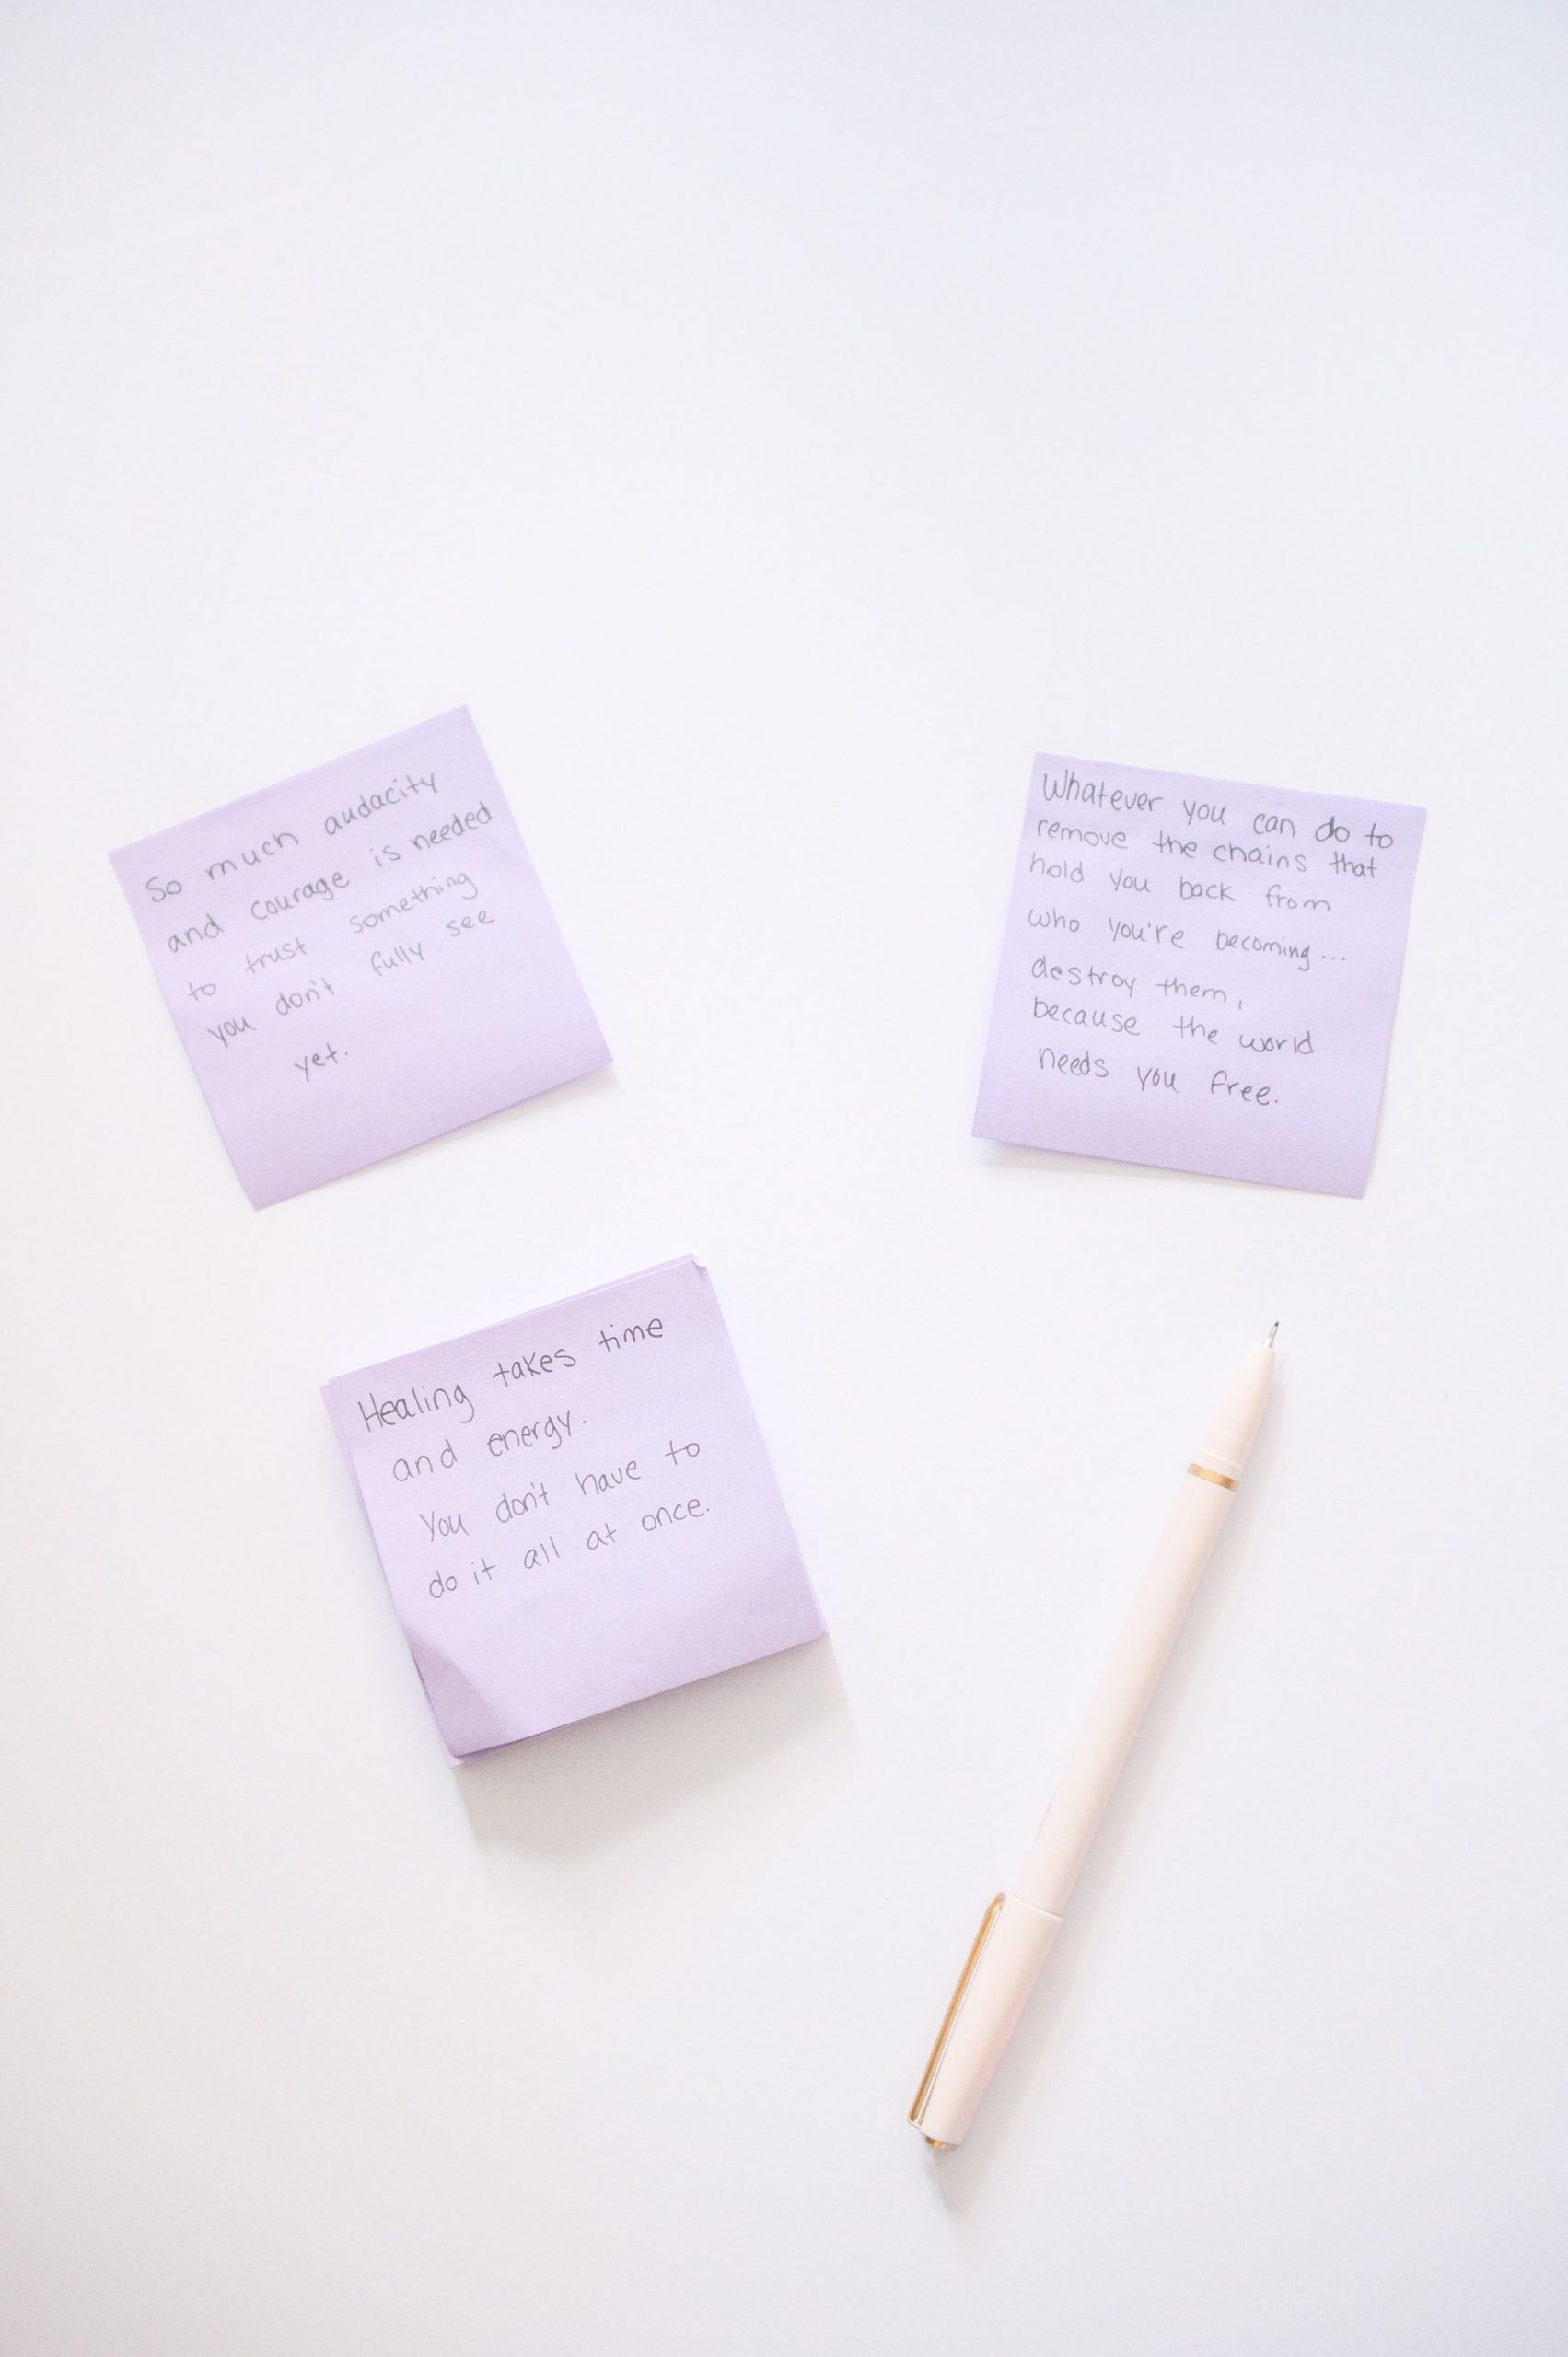 So much audacity
and courage is needed
to trust something
you don't fully see
yet.
Whatever you can do to
remove the chains that
hold you back from
who you're becoming...
destroy them,
because the world
needs you free.
Healing takes time
and energy.
You don't have to
do it all at once.